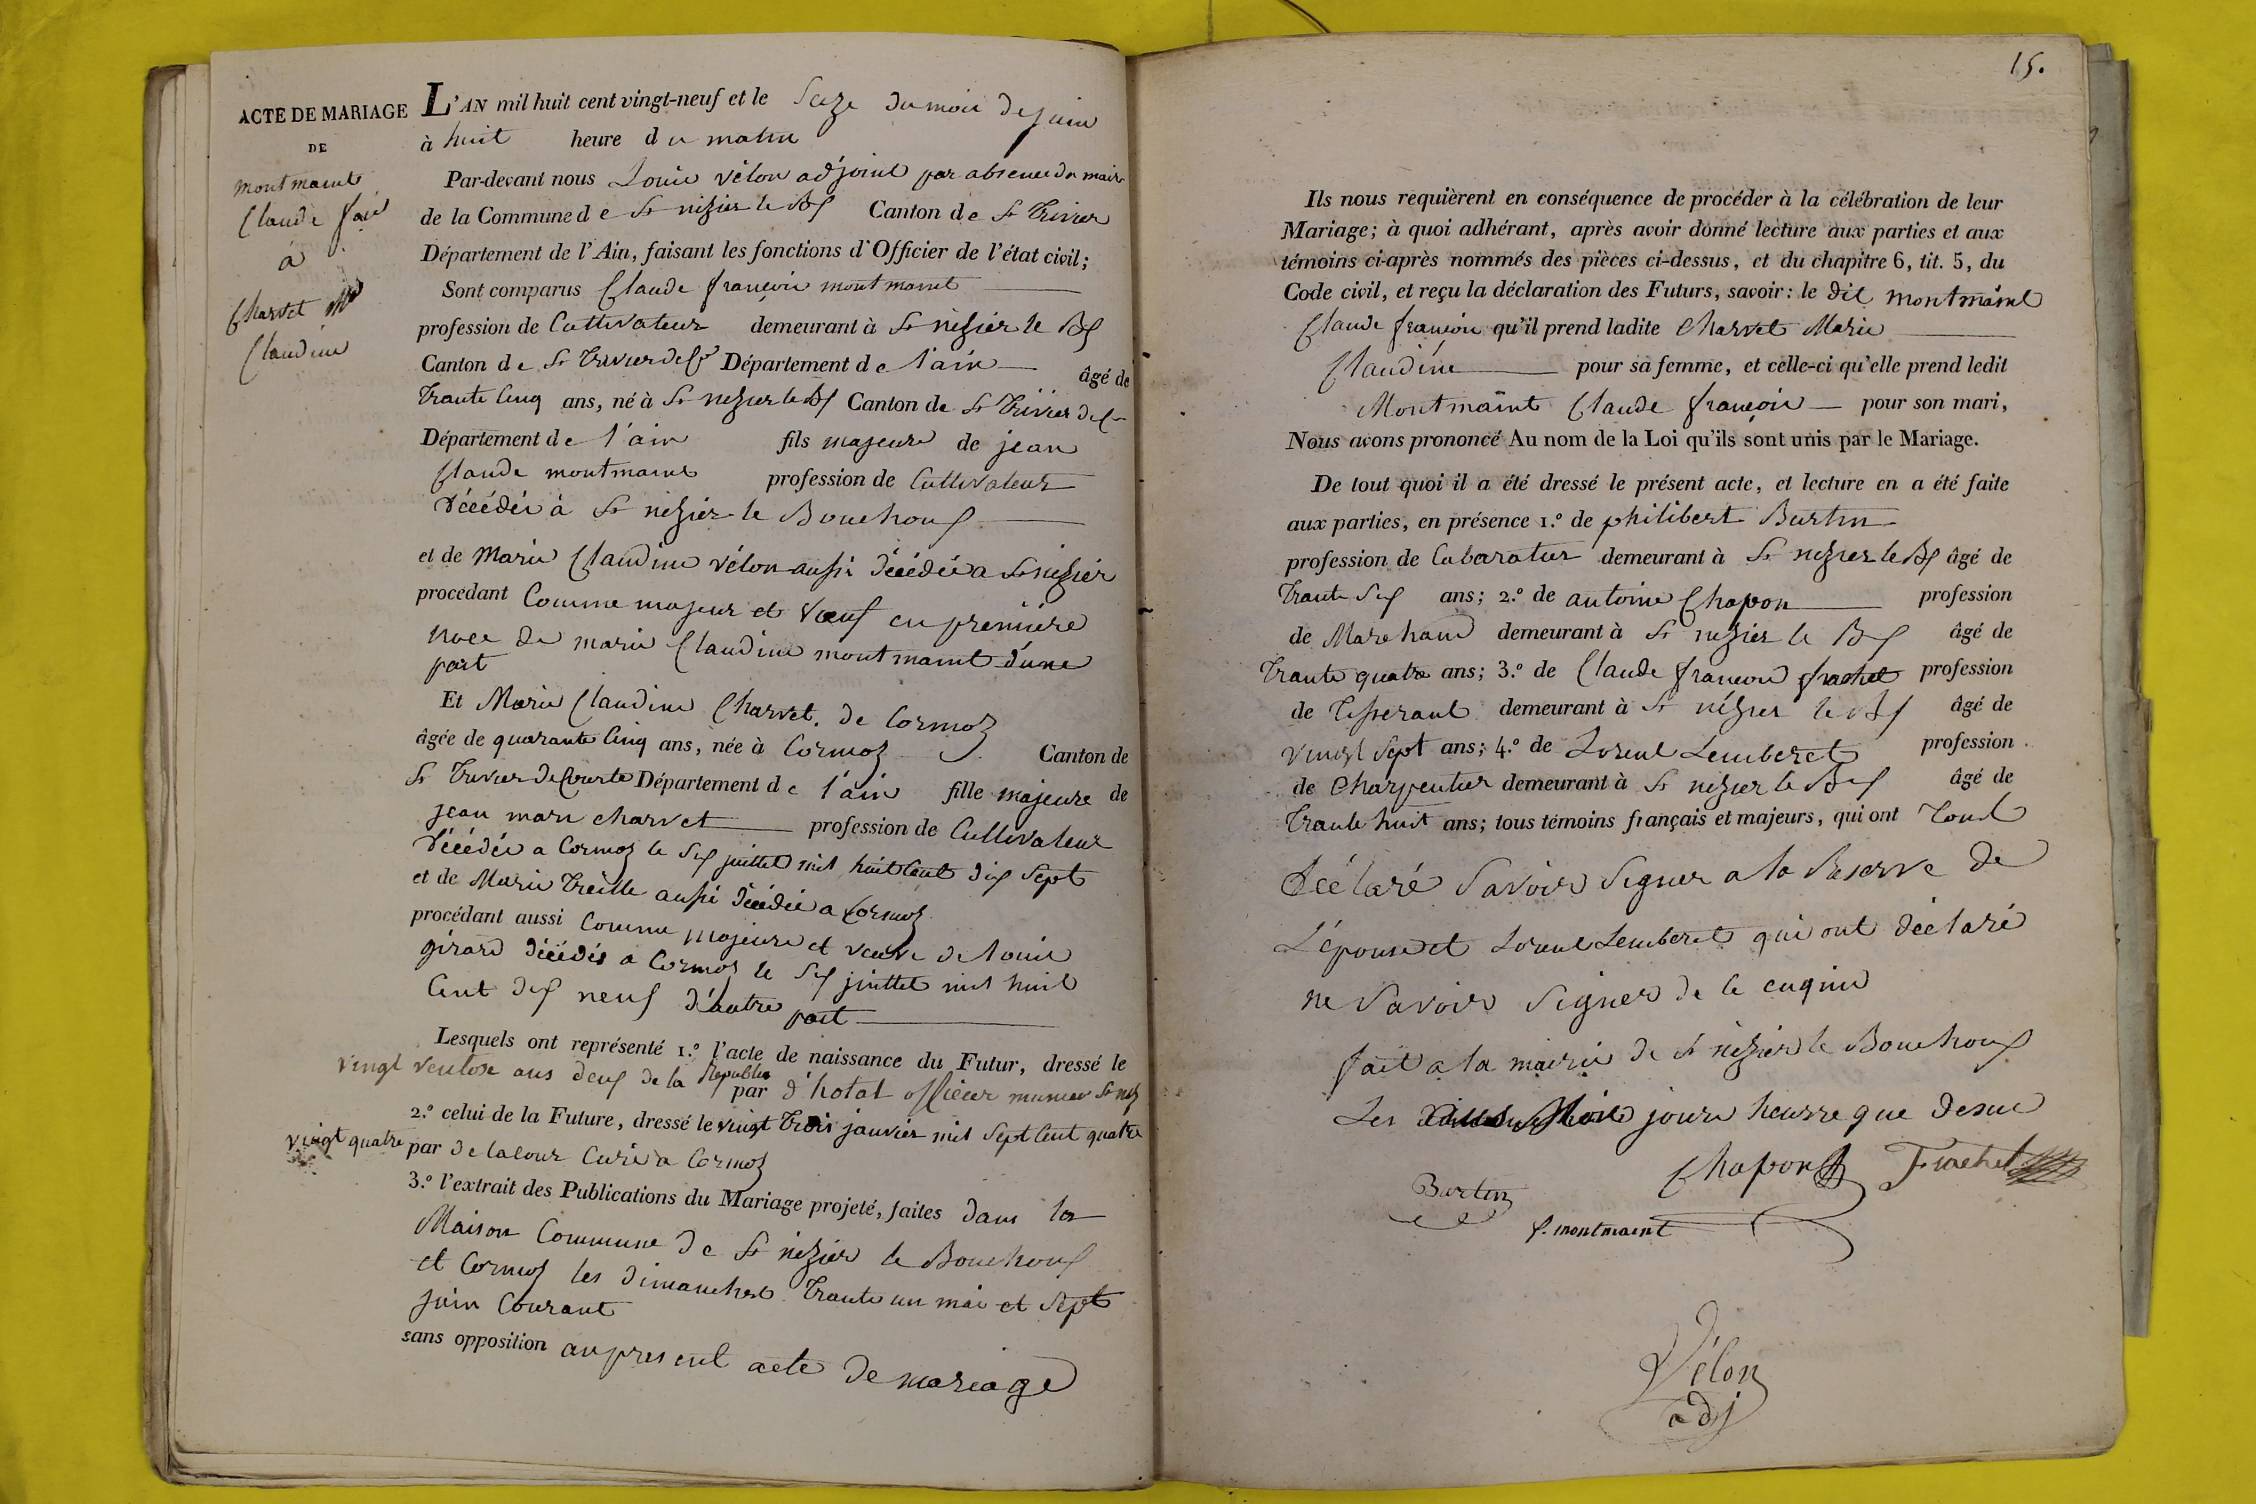 ACTE DE MARIAGE
DE
montmaint
Claude fois
à
Charvet Mie
Claudine
L'AN mil huit cent vingt-neuf et le Seize du mois de juin
à huit heure du matin
Par-devant nous Louis vélon adjoint par absence du maire
de la Commune de St nizier le Bx Canton de St Trivier
Département de l'Ain, faisant les fonctions d'Officier de l'état civil;
Sont comparus Claude françois montmaint
profession de Cultivateur demeurant à St nizier le Bx
Canton de St Trivier de Cs Département de l'ain âgé de
Trante Cinq ans, né à St nizier le Bx Canton de St Trivier de Cs
Département de l'ain fils majeure de jean
Claude montmaint profession de Cultivateur
Décédéé à St nizier le Bouchoux
et de Marie Claudine vélon aussi décédéé a St nizier
procédant Comme majeur et veuf en première
noce de marie Claudine montmaint d'une
part
Et Marie Claudine Charvet. de Cormoz
âgée de quarante Cinq ans, née à Cormoz Canton de
St Trivier de Courte Département de l'ain fille majeure de
jean marie charvet profession de Cultivateur
Décédéé a Cormoz le six juillet mil huit Cent dix sept
et de Marie Treille aussi décédéé a Cormoz
procédant aussi Comme majeure et veuve de louis
girard décédés a Cormoz le six juillet mil huit
Cent dix neuf d'autre part
Lesquels ont représenté 1.º l'acte de naissance du Futur, dressé le
vingt ventose ans deux de la Republi par d'hotal officier munici St niz
2.º celui de la Future, dressé le vingt Trois janvier mil sept Cent quatre
vingt quatre par delacour Curé a Cormoz
3.º l'extrait des Publications du Mariage projeté, faites dans la
Maison Commune de St nizier le Bouchoux
et Cormoz les dimanches Trante un mai et sept
juin Courant
sans opposition au present acte de mariage
15.
Ils nous requièrent en conséquence de procéder à la célébration de leur
Mariage; à quoi adhérant, après avoir donné lecture aux parties et aux
témoins ci-après nommés des pièces ci-dessus, et du chapitre 6, tit. 5, du
Code civil, et reçu la déclaration des Futurs, savoir: le dit montmaint
Claude françois qu'il prend ladite Charvet Marie
Claudine pour sa femme, et celle-ci qu'elle prend ledit
Montmaint Claude françois pour son mari,
Nous avons prononcé Au nom de la Loi qu'ils sont unis par le Mariage.
De tout quoi il a été dressé le présent acte, et lecture en a été faite
aux parties, en présence 1.º de philibert Burtin
profession de Cabaratier demeurant à St nizier le Bx âgé de
Trante Six ans; 2.º de antoine Chapon profession
de Marchand demeurant à St nizier le Bx âgé de
Trante quatre ans; 3.º de Claude françois frachet profession
de Tisserant demeurant à St nizier le Bx âgé de
vingt sept ans; 4.º de Lorent Lemberet profession
de Charpentier demeurant à St nizier le Bx âgé de
Trante huit ans; tous témoins français et majeurs, qui ont Tout
Déclaré Savoir Signer a la Reserve de
L'épouse et Lorent Lemberet qui ont déclaré
ne Savoir Signer de le enquis
fait a la mairie de St nizier le Bouchoux
Les jours heurre que desue
Burtin Chapon Frachet
f. montmaint
Vélon
adj